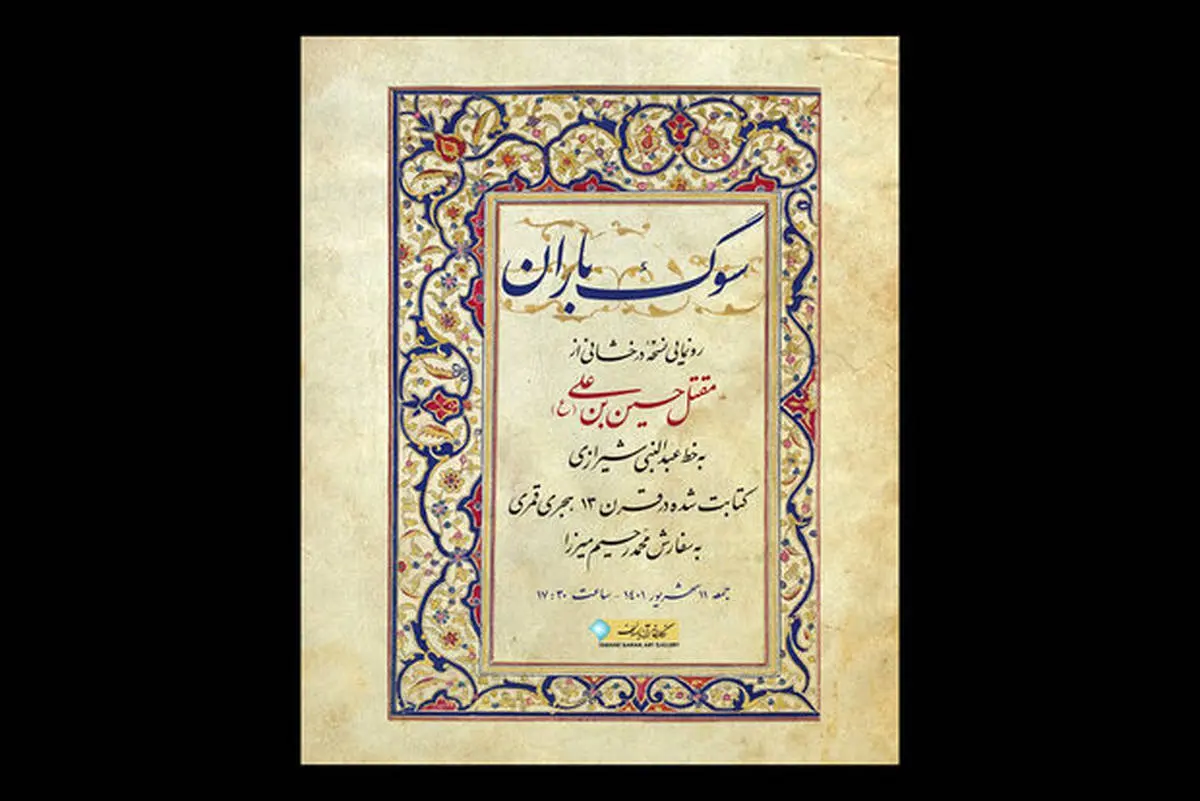 سوگ باران
رونمایی نسخهٔ درخشانی از
مقتل حسین بن علی (ع)
به خط عبدالنبی شیرازی
کتابت شده در قرن ۱۳ هجری قمری
به سفارش محمد رحیم میرزا
جمعه ۱۱ شهریور ۱۴۰۱ - ساعت ۱۷:۳۰
ART GALLERY